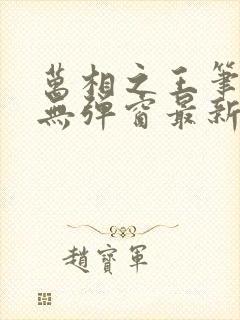 萬相之王筆
無彈窗最新
趙寶軍